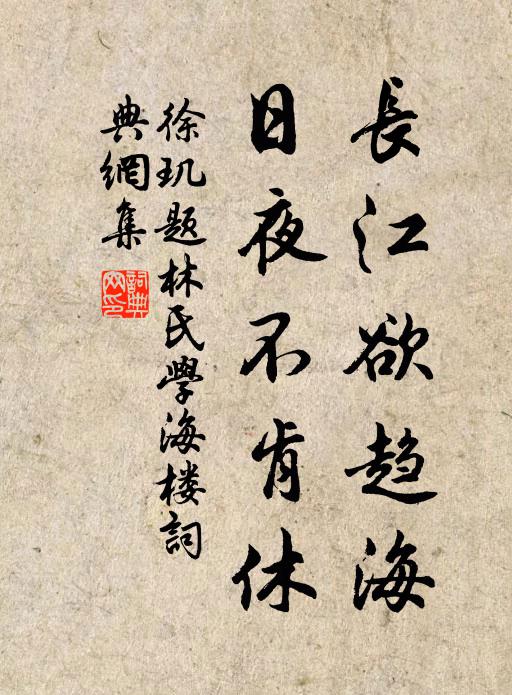 長江欲趋海
日夜不肯休
徐玑题林氏學海楼詞
典網集
詞典网印